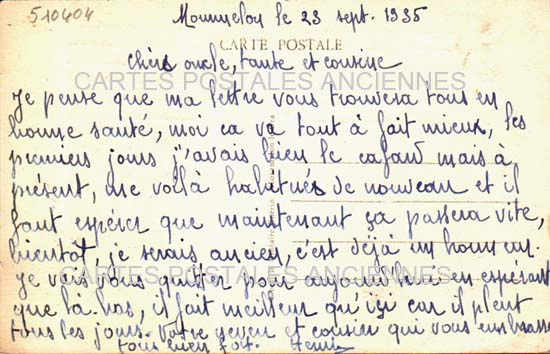 510404
Mourmelon le 23 sept. 1935
CARTE POSTALE
Chers oncle, tante et cousine
CARTES POSTALES ANCIENNES
Je pense que ma lettre vous trouvera tous en
bonne santé, moi ca va tout à fait mieux, les
premiers jours j'avais bien le cafard mais à
présent, me voilà habitués de nouveau et il
faut espérer que maintenant ça passera vite,
bientôt, je serais ancien, c'est déjà un honneur.
CARTES POSTALES ANCIENNES
Je vais vous quitter pour aujourd'hui en espérant
que là-bas, il fait meilleur qu'ici car il pleut
tous les jours. Votre neveu et cousin qui vous embrasse
tous bien fort. Henri